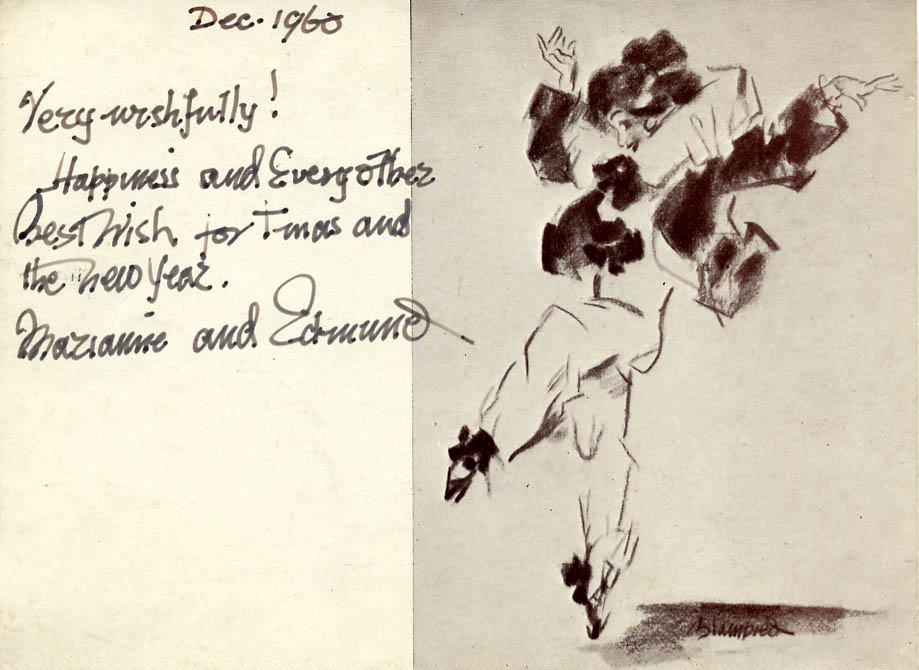 Dec. 1960
Very wishfully!
Happiness and Every other
best Wish for Tmas and
the new Year.
Marianne and Edmund